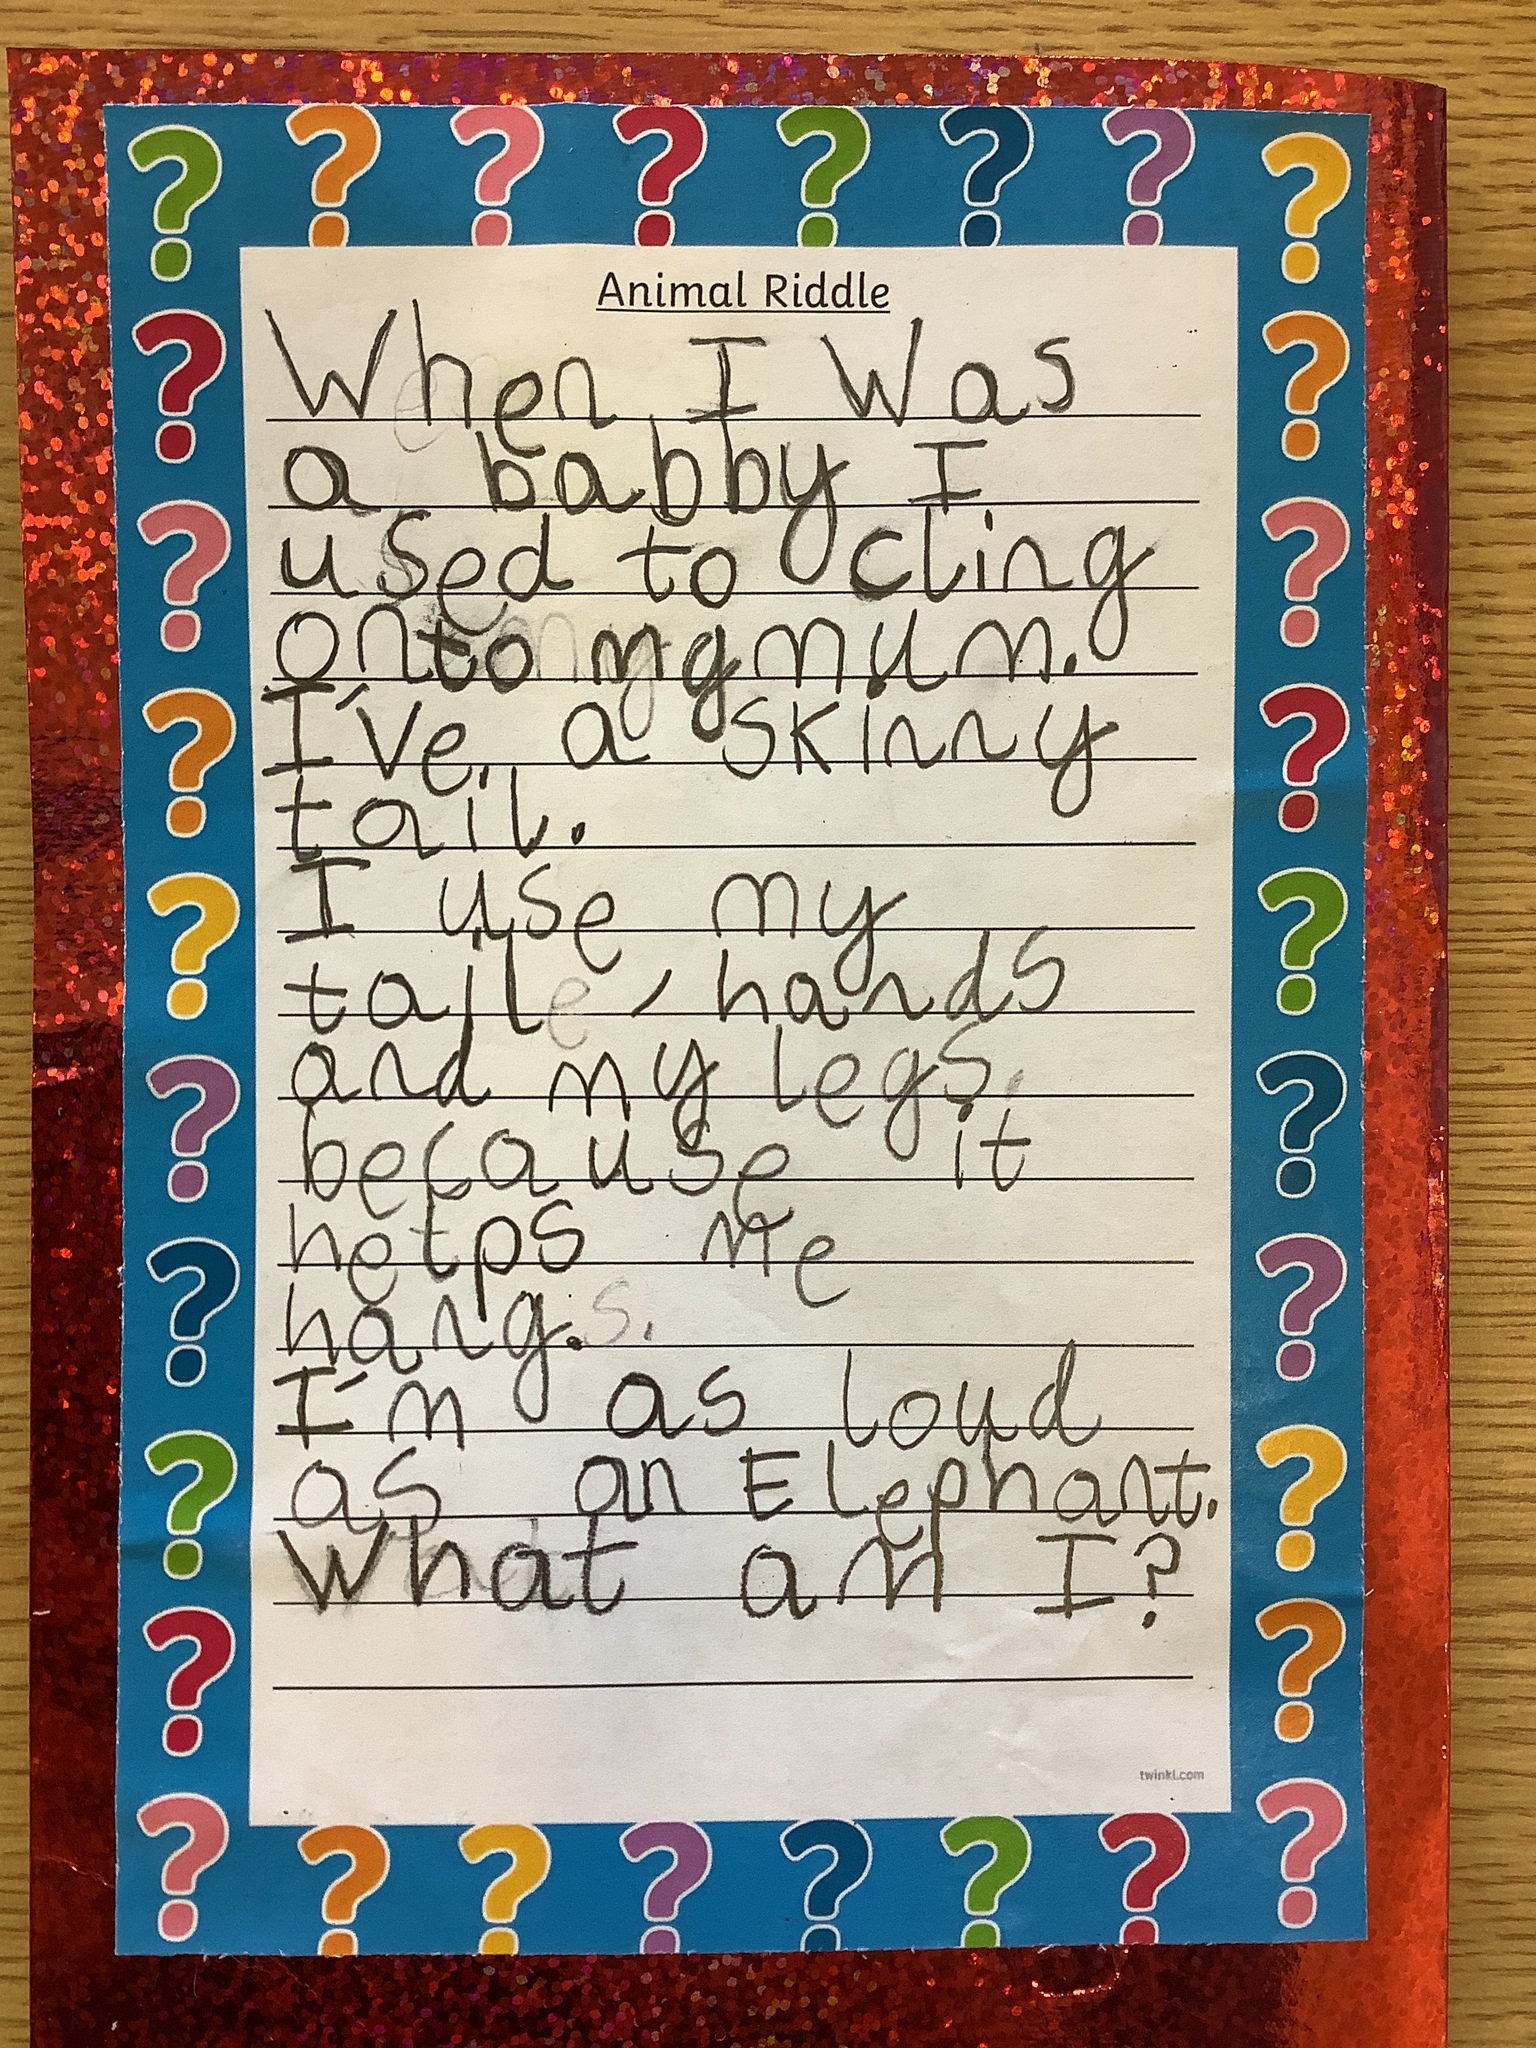 Animal Riddle
When I Was
a babby I
used to cling
onto my mum.
I've a skinny
tail.
I use my
tail, hands
and my legs
because it
helps me
hang.
I'm as loud
as an Elephant.
What am I?
twinkl.com